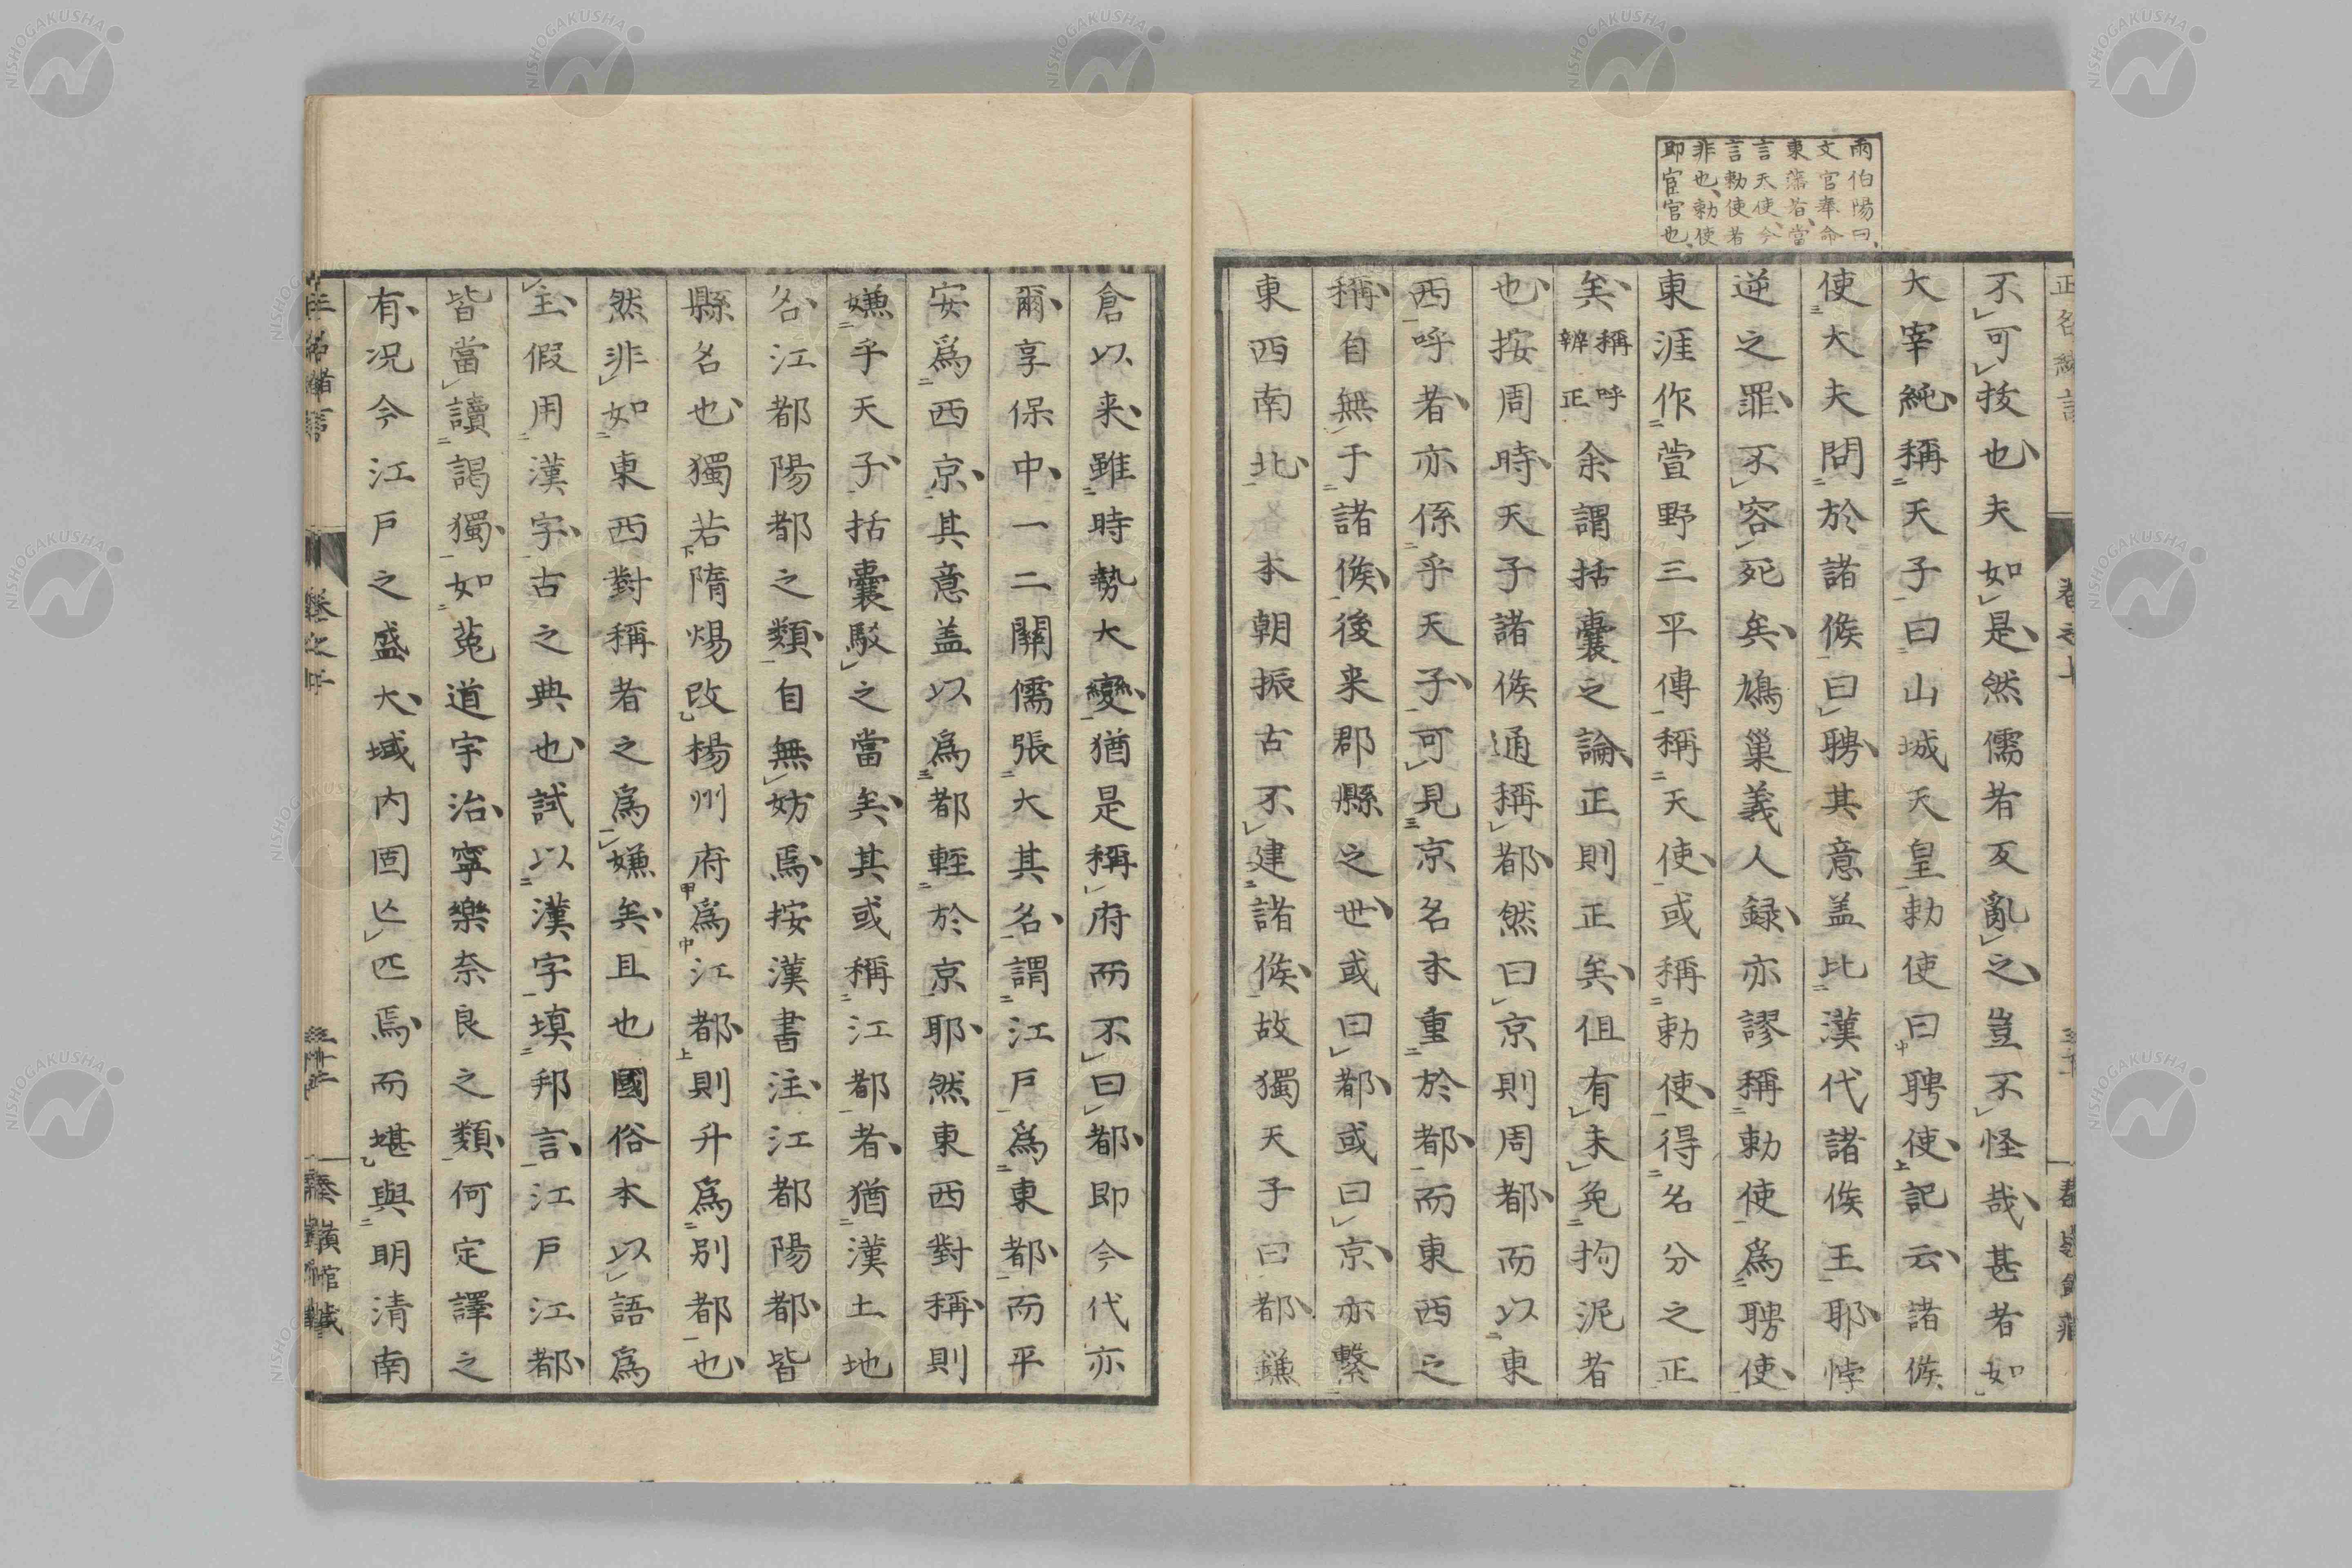 雨伯陽曰、
文官奉命
東藩者、當
言天使、今
言勅使者
非也、勅使
即宦官也、
不可拔也、夫如是、然儒者反亂之、豈不怪哉、甚者如
大宰純、稱天子曰山城天皇、勅使曰聘使、記云、諸侯
使大夫問於諸侯曰聘、其意盖比漢代諸侯王耶、悖
逆之罪、不容死矣、鳩巢義人録、亦謬稱勅使爲聘使、
東涯作萱野三平傳稱天使、或稱勅使、得名分之正
矣、稱呼辨正余謂括囊之論、正則正矣、但有未免拘泥者
也、按周時、天子諸侯通稱都、然曰京則周都、而以東
西呼者、亦係乎天子、可見京名本重於都、而東西之
稱、自無于諸侯、後来郡縣之世、或曰都、或曰京、亦繫
東西南北、本朝振古不建諸侯、故獨天子曰都、鎌
倉以来、雖時勢大變、猶是稱府而不曰都、即今代亦
爾、享保中、一二關儒張大其名、謂江戸爲東都、而平
安爲西京、其意盖以爲都輕於京耶、然東西對稱、則
嫌乎天子、括囊駁之當矣、其或稱江都者、猶漢土地
名、江都陽都之類、自無妨焉、按漢書注、江都陽都、皆
縣名也、獨若隋煬改楊州府爲江都、則升爲別都也、
然非如東西對稱者之爲嫌矣、且也國俗本以語爲
主、假用漢字、古之典也、試以漢字塡邦言、江戸江都、
皆當讀謁獨、如菟道宇治、寧樂奈良之類、何定譯之
有、況今江戸之盛大、域内固亡匹焉、而堪與明清南